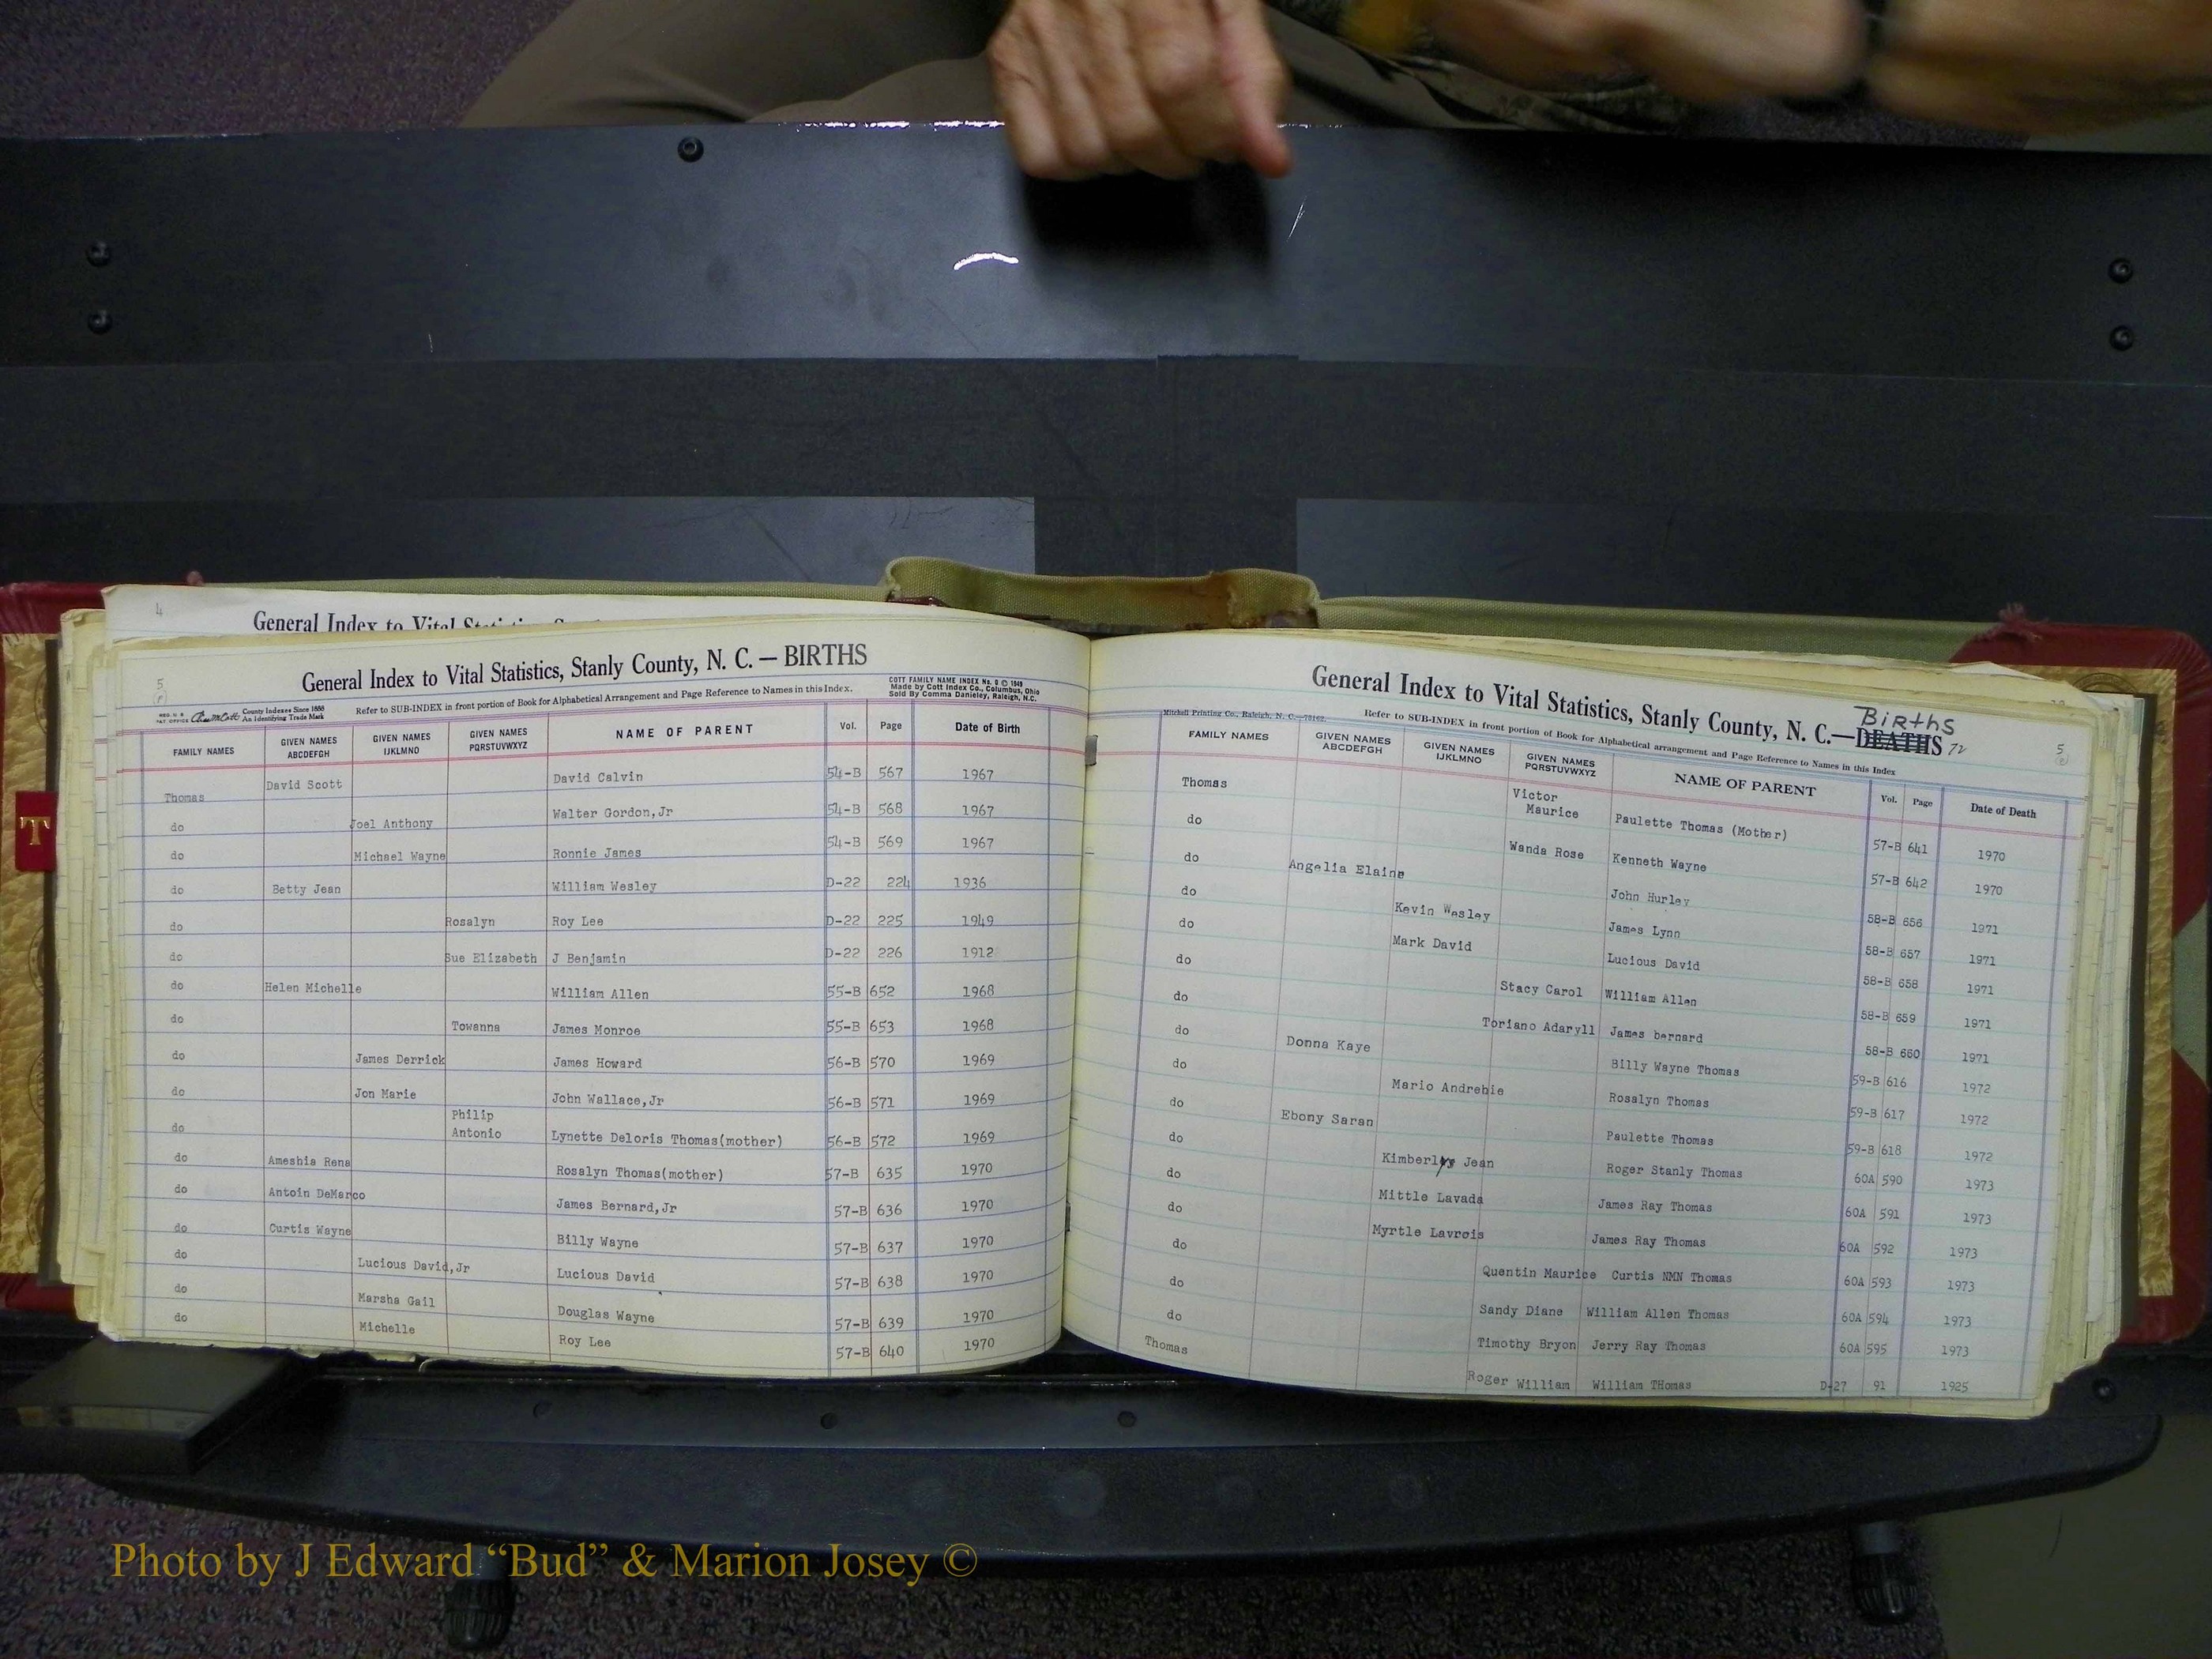 4
General Index to Vital Statistics
5
General Index to Vital Statistics, Stanly County, N. C. — BIRTHS
County Indexes Since 1888
An Identifying Trade Mark
Refer to SUB-INDEX in front portion of Book for Alphabetical Arrangement and Page Reference to Names in this Index.
COTT FAMILY NAME INDEX No. 9 © 1949
Made by Cott Index Co., Columbus, Ohio
Sold By Comma Danieley, Raleigh, N.C.
FAMILY NAMES GIVEN NAMES ABCDEFGH GIVEN NAMES IJKLMNO GIVEN NAMES PQRSTUVWXYZ NAME OF PARENT Vol. Page Date of Birth
Thomas David Scott David Calvin 54-B 567 1967
do Joel Anthony Walter Gordon,Jr 54-B 568 1967
do Michael Wayne Ronnie James 54-B 569 1967
do Betty Jean William Wesley D-22 224 1936
do Rosalyn Roy Lee D-22 225 1949
do Sue Elizabeth J Benjamin D-22 226 1912
do Helen Michelle William Allen 55-B 652 1968
do Towanna James Monroe 55-B 653 1968
do James Derrick James Howard 56-B 570 1969
do Jon Marie John Wallace,Jr 56-B 571 1969
do Philip Antonio Lynette Deloris Thomas(mother) 56-B 572 1969
do Ameshia Rena Rosalyn Thomas(mother) 57-B 635 1970
do Antoin DeMarco James Bernard,Jr 57-B 636 1970
do Curtis Wayne Billy Wayne 57-B 637 1970
do Lucious David,Jr Lucious David 57-B 638 1970
do Marsha Gail Douglas Wayne 57-B 639 1970
do Michelle Roy Lee 57-B 640 1970
T
General Index to Vital Statistics, Stanly County, N. C.—DEATHS
Births
72
5
Mitchell Printing Co., Raleigh, N. C.—75162
Refer to SUB-INDEX in front portion of Book for Alphabetical arrangement and Page Reference to Names in this Index
FAMILY NAMES GIVEN NAMES ABCDEFGH GIVEN NAMES IJKLMNO GIVEN NAMES PQRSTUVWXYZ NAME OF PARENT Vol. Page Date of Death
Thomas Victor Maurice Paulette Thomas (Mother) 57-B 641 1970
do Wanda Rose Kenneth Wayne 57-B 642 1970
do Angelia Elaine John Hurley 58-B 656 1971
do Kevin Wesley James Lynn 58-B 657 1971
do Mark David Lucious David 58-B 658 1971
do Stacy Carol William Allen 58-B 659 1971
do Toriano Adaryll James bernard 58-B 660 1971
do Donna Kaye Billy Wayne Thomas 59-B 616 1972
do Mario Andrehie Rosalyn Thomas 59-B 617 1972
do Ebony Saran Paulette Thomas 59-B 618 1972
do Kimberly Jean Roger Stanly Thomas 60A 590 1973
do Mittle Lavada James Ray Thomas 60A 591 1973
do Myrtle Lavrois James Ray Thomas 60A 592 1973
do Quentin Maurice Curtis NMN Thomas 60A 593 1973
do Sandy Diane William Allen Thomas 60A 594 1973
do Timothy Bryon Jerry Ray Thomas 60A 595 1973
Thomas Roger William William THomas D-27 91 1925
Photo by J Edward “Bud” & Marion Josey ©